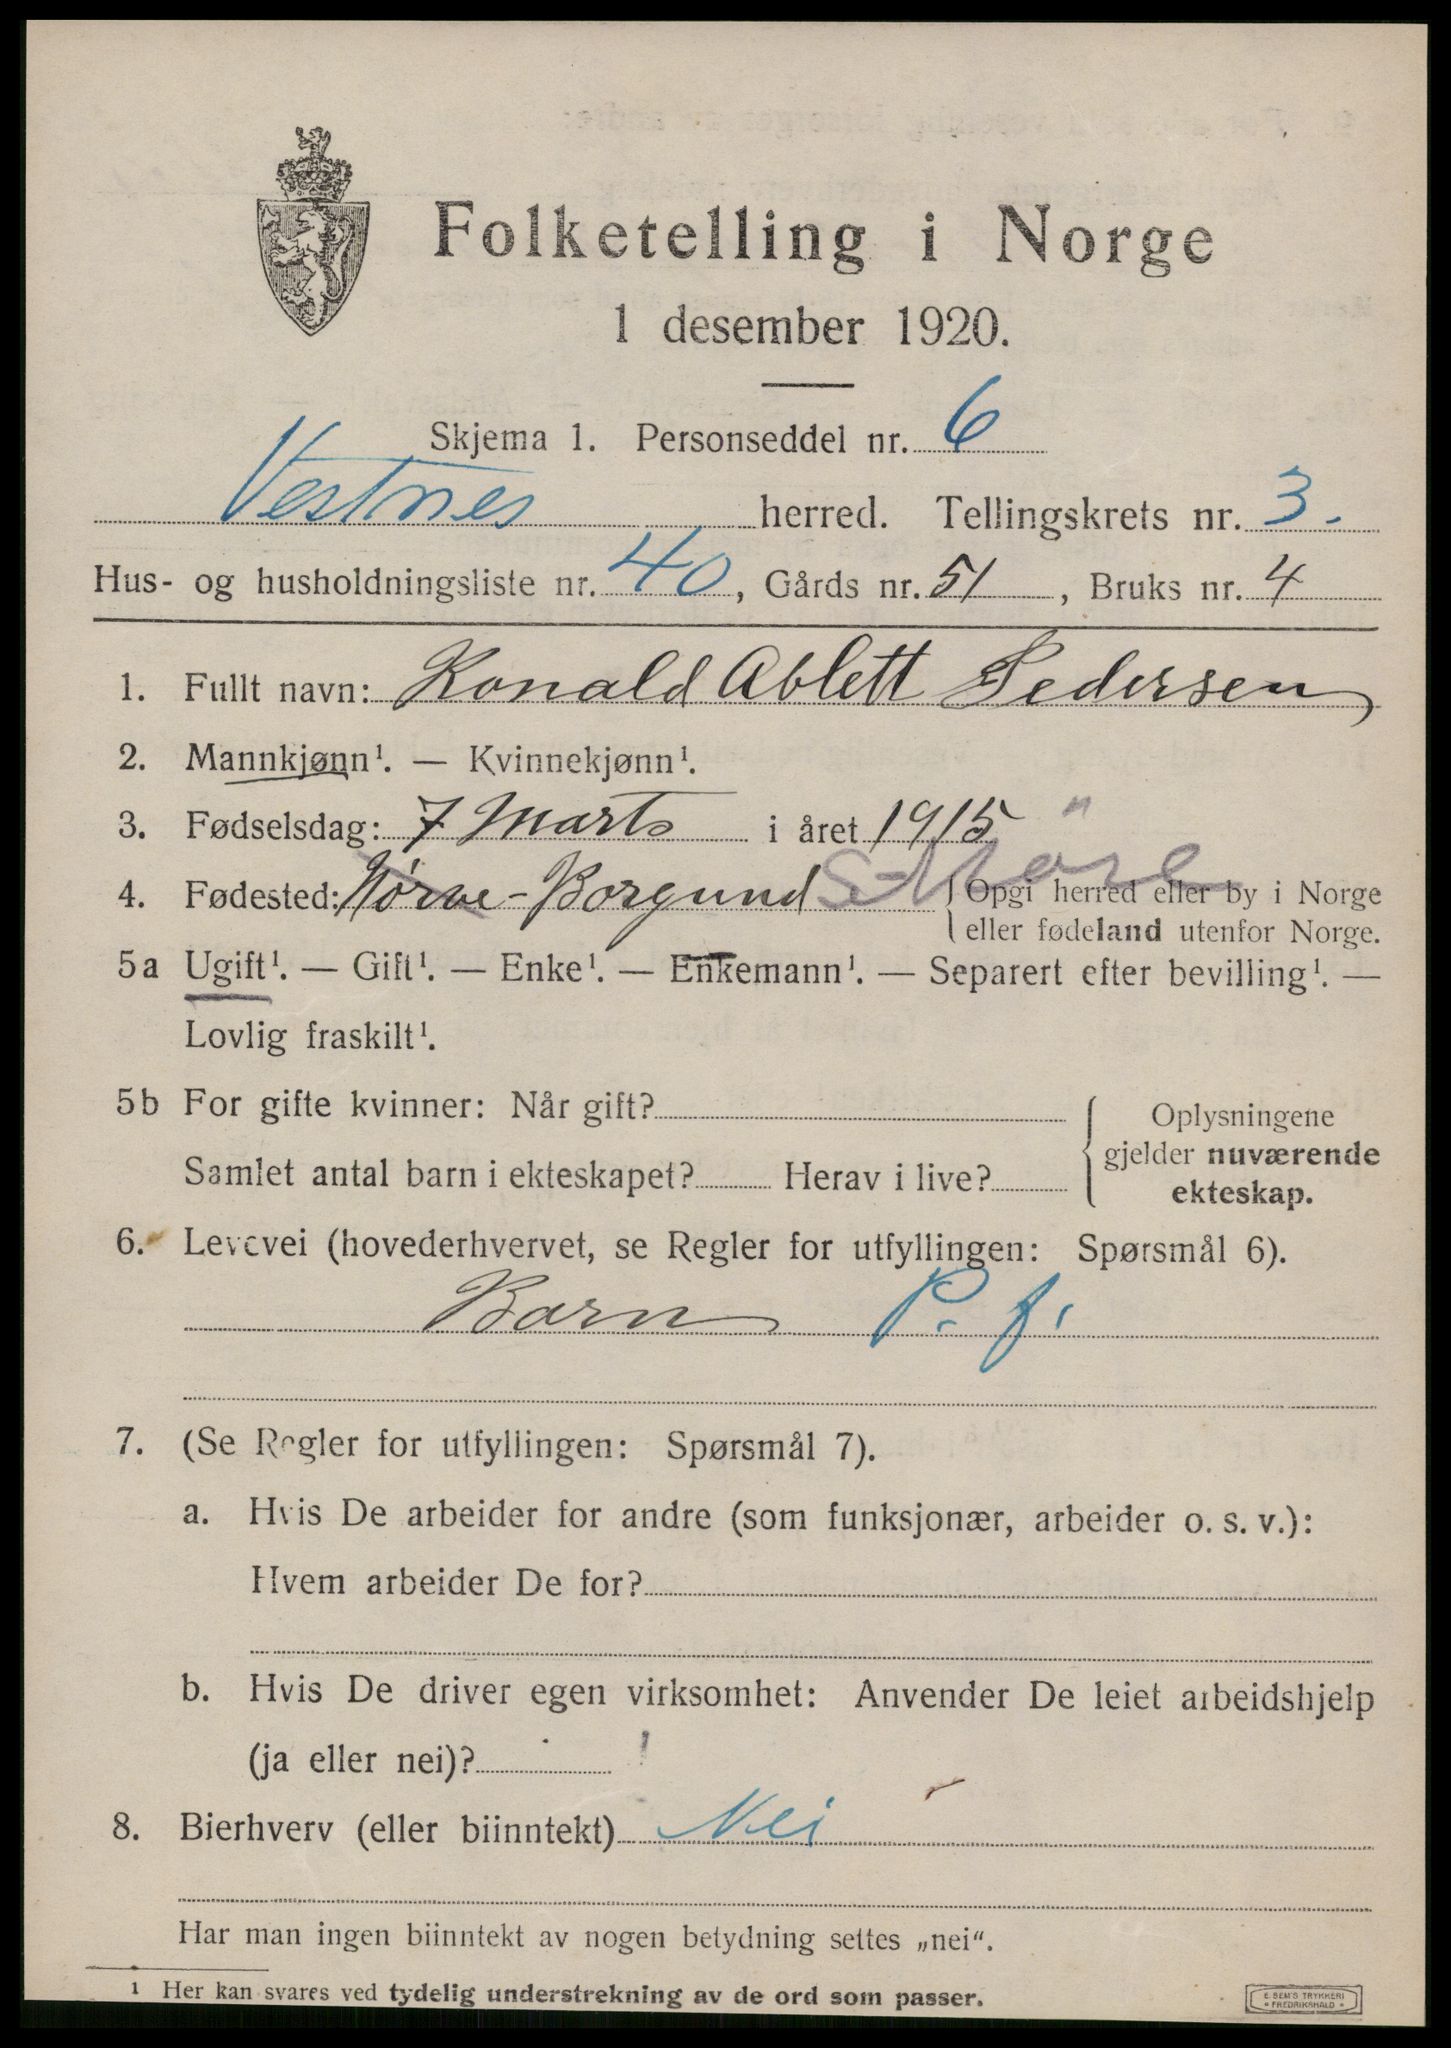 Folketelling i Norge
1 desember 1920.
Skjema 1. Personseddel nr. 6
Vestnes herred. Tellingskrets nr. 3.
Hus- og husholdningsliste nr. 40, Gårds nr. 51, Bruks nr. 4
1. Fullt navn: Ronald Ablett Pedersen
2. Mannkjønn¹. — Kvinnekjønn¹.
3. Fødselsdag: 7 Marts i året 1915
4. Fødested: Nørve-Borgund S-Möre { Opgi herred eller by i Norge
eller fødeland utenfor Norge.
5a Ugift¹. — Gift¹. — Enke¹. — Enkemann¹. — Separert efter bevilling¹. —
Lovlig fraskilt¹.
5b For gifte kvinner: Når gift?
Samlet antal barn i ekteskapet? Herav i live?
{ Oplysningene
gjelder nuværende
ekteskap.
6. Levevei (hovederhvervet, se Regler for utfyllingen: Spørsmål 6).
Barn P. f.
7. (Se Regler for utfyllingen: Spørsmål 7).
a. Hvis De arbeider for andre (som funksjonær, arbeider o. s. v.):
Hvem arbeider De for?
b. Hvis De driver egen virksomhet: Anvender De leiet arbeidshjelp
(ja eller nei)?
8. Bierhverv (eller biinntekt) Nei
Har man ingen biinntekt av nogen betydning settes „nei“.
¹ Her kan svares ved tydelig understrekning av de ord som passer.
E. SEM'S TRYKKERI
* FREDRIKSHALD *